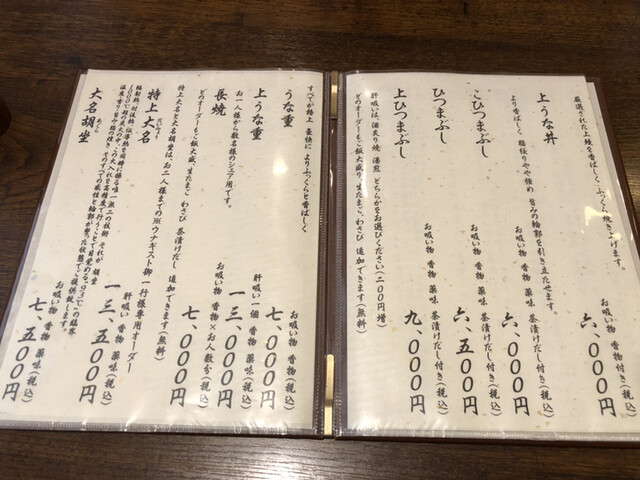 厳選された上鰻を香ばしく、ふっくら焼き上げます。
上うな丼
お吸い物 香物(税込)
六、〇〇〇円
より香ばしく 脂張りやや強め 旨みの輪郭を引き立たせます。
こひつまぶし
お吸い物 香物 薬味 茶漬けだし付き(税込)
六、〇〇〇円
ひつまぶし
お吸い物 香物 薬味 茶漬けだし付き(税込)
六、五〇〇円
上ひつまぶし
お吸い物 香物 薬味 茶漬けだし付き(税込)
九、〇〇〇円
肝吸いは、酒炙り焼 湯煎 どちらかをお選びください(二〇〇円増)
どのオーダーもご飯大盛り、生たまご、わさび 追加できます(無料)
すべてが極上 最快に よりふっくらと香ばしく
うな重
お吸い物 香物(税込)
七、〇〇〇円
上うな重
肝吸い一個 香物 薬味(税込)
一三、〇〇〇円
お一人様から数名様のシェア用です。
長焼
お吸い物 香物×お人数分(税込)
七、〇〇〇円
どのオーダーもご飯大盛、生たまご、わさび 茶漬けだし 追加できます(無料)
特上大名と大名胡坐は、お二人様までの※ウナギスト御一行様専用オーダー
特上大名
だいみょう
肝吸い 香物 薬味(税込)
一三、五〇〇円
輻射熱、対流熱、伝導熱を同時に操る唯一無二の技術
大名胡坐
あぐら
お吸い物 香物 薬味(税込)
七、五〇〇円